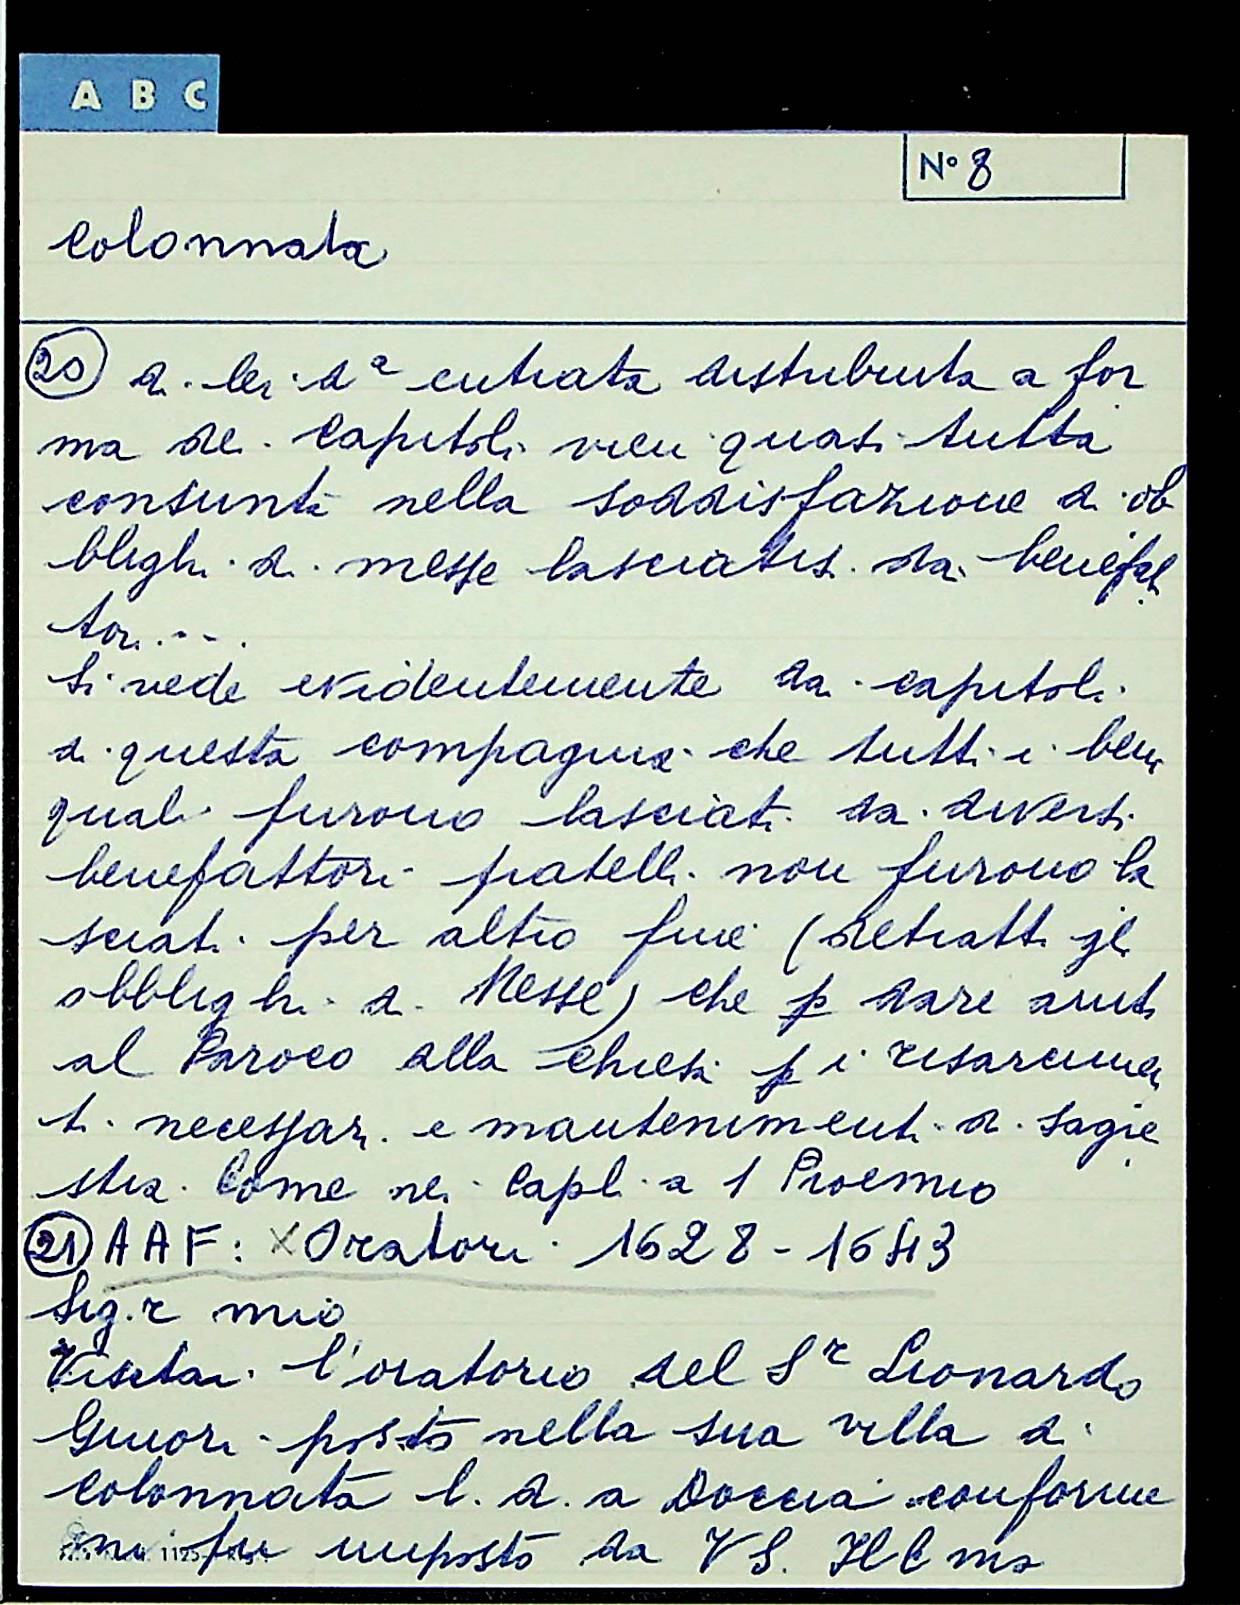 A B C
N° 8
Colonnata
20 di lei dᵃ entrata distribuita a for
ma dei Capitoli vien quasi tutta
consunta nella soddisfazione di ob
blighi di messe lasciatis. da benefat
tori...
Si vede evidentemente dai capitoli
di questa compagnia che tutti i beni
quali furono lasciati da diversi
benefattori fratelli non furono la
sciati per altro fine (detratti gl
obblighi di Messe) che p dare aiuti
al Paroco alla chiesa p i risarcimen
ti necessari e mantenimenti di sagre
stia. Come nei Capli a 1 Proemio
21 AAF: X Oratori 1628 - 1643
Sig.r mio
Visitai l'oratorio del Sʳ Lionardo
Ginori posto nella sua villa di
Colonnata l. d. a Doccia conforme
mi fu imposto da VS. Illma